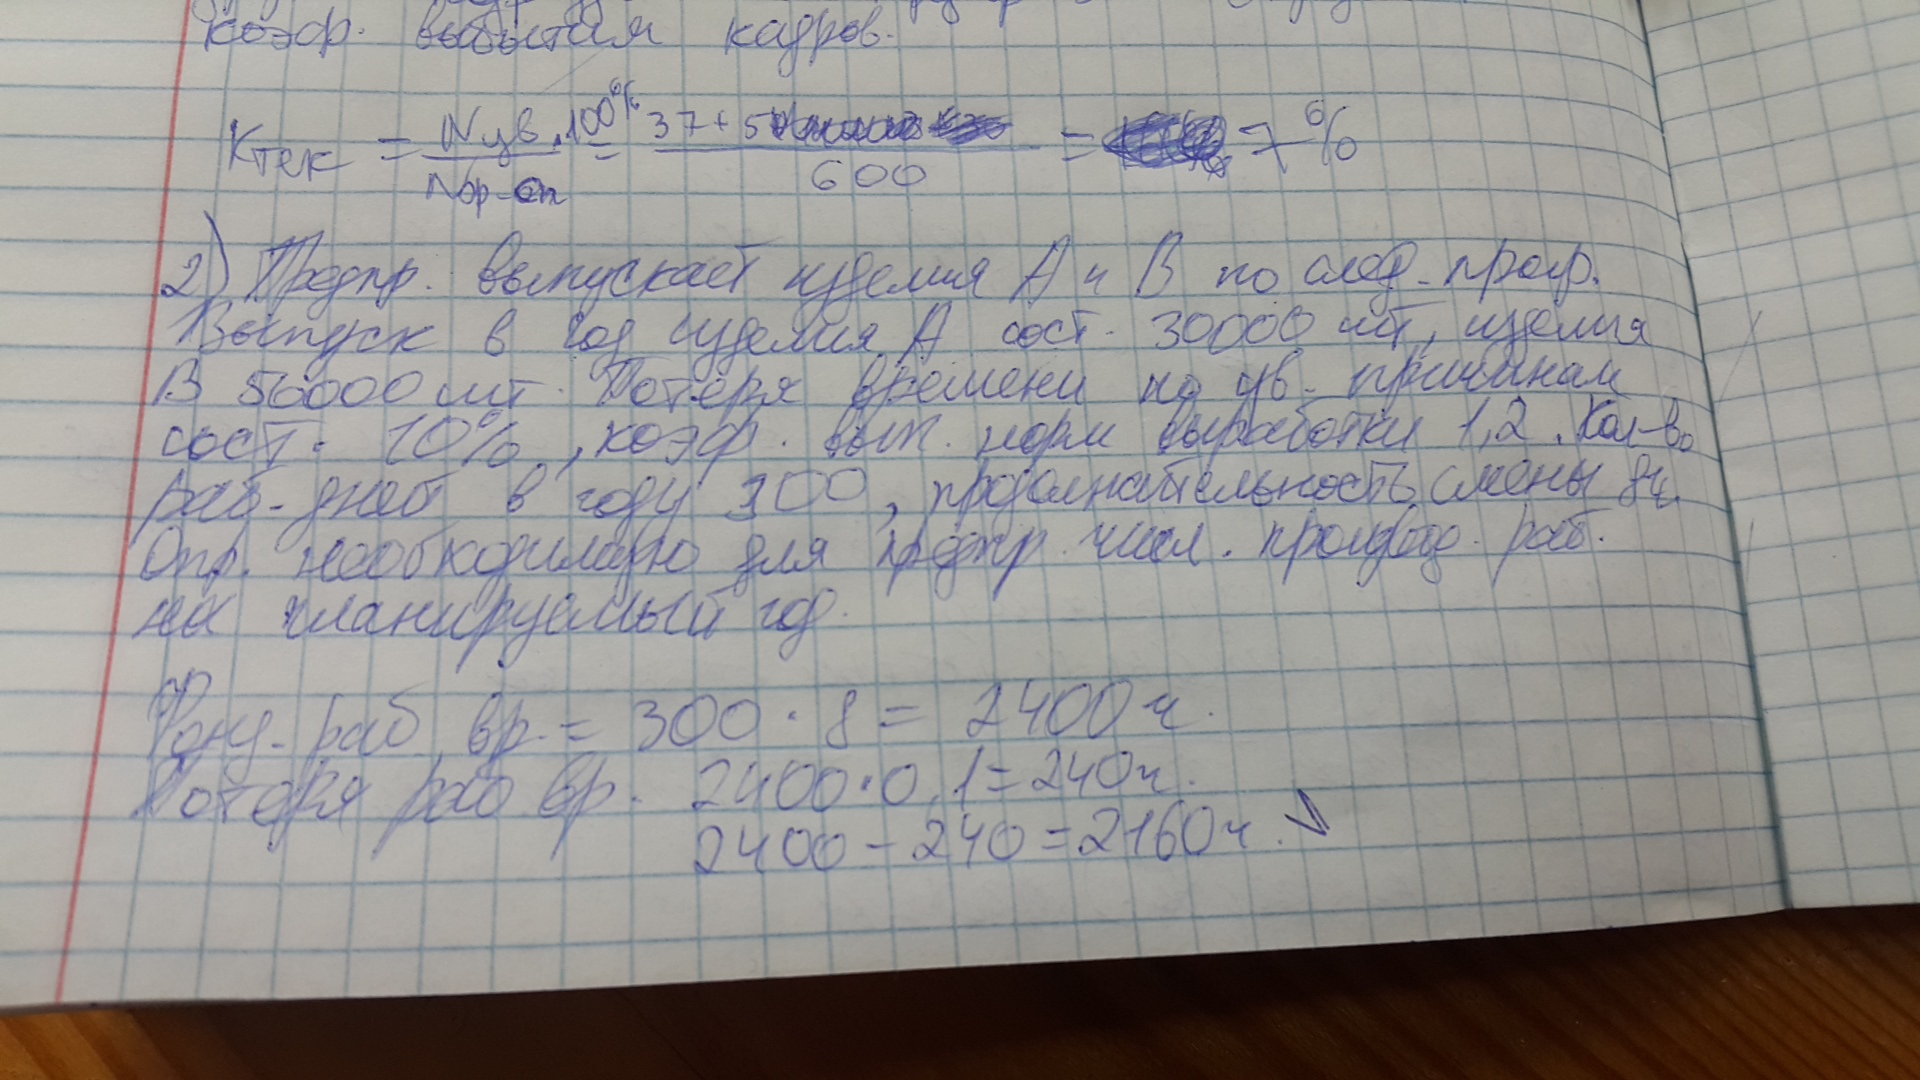 коэф. выбытия кадров.
Kтек = Nув. · 100% / Nср-сп = 37+5 / 600 = 7%
2) Предпр. выпускает изделия А и В по след. прогр.
Выпуск в год изделия А сост. 30000 шт, изделия
В 50000 шт. Потеря времени по ув. причинам
сост. 10%, коэф. вып. норм выработки 1,2. Кол-во
раб. дней в году 300, продолжательность смены 8ч.
Опр. необходимую для предпр. числ. производ. раб.
на планируемый год.
Фонд. раб вр. = 300 · 8 = 2400 ч.
Потеря раб вр. 2400 · 0,1 = 240ч.
2400 - 240 = 2160ч.